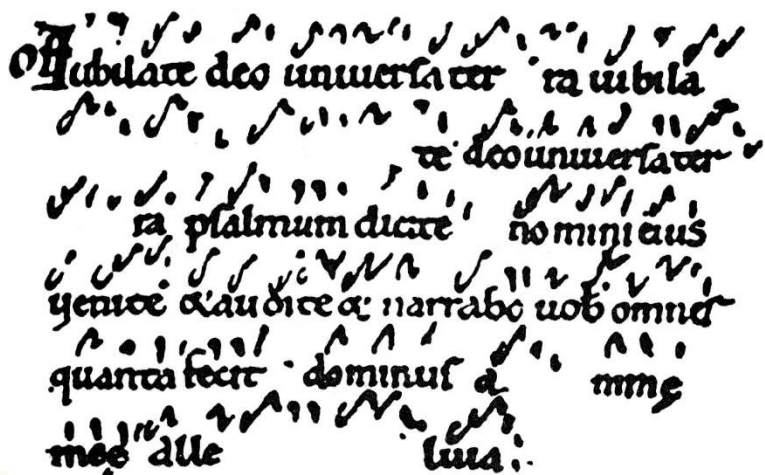 Off Iubilate deo uniuersa ter ra iubila
te deo uniuersa ter
ra psalmum dicite nomini eius
uenite & audite & narrabo uob omnes
quanta fecit dominus a mme
meę alle luia.